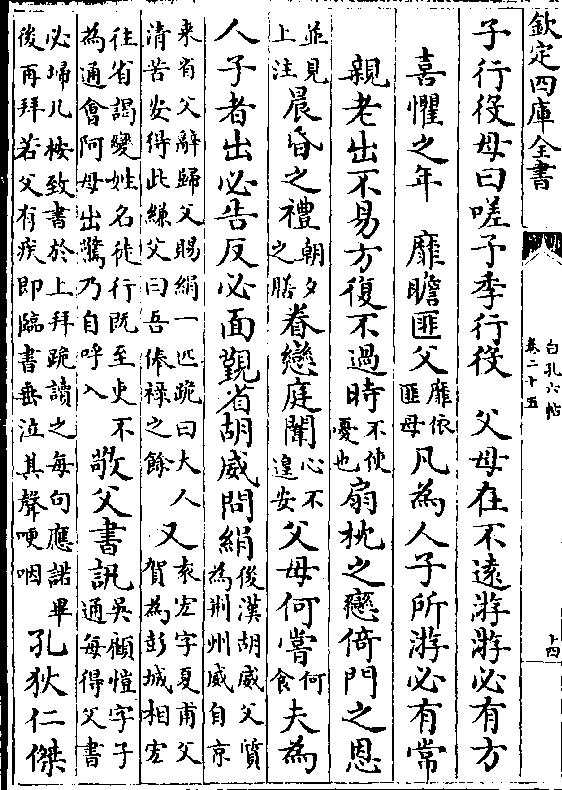 欽定四庫全書
白孔六帖
卷二十五
十四
子行役母曰嗟予季行役　父母在不遠游游必有方
喜懼之年　靡瞻匪父靡依匪母凡為人子所游必有常
親老出不易方復不過時不使憂也扇枕之戀倚門之恩
並見上注晨昏之禮朝夕之膳眷戀庭闈心不遑安父母何嘗何食夫為
人子者出必告反必面覲省胡威問絹後漢胡威父質為荆州威自京
來省父辭歸父賜絹一匹跪曰大人清苦安得此縑父曰吾俸祿之餘又袁宏字夏甫父賀為彭城相宏
往省謁變姓名徒行既至吏不為通會阿母出驚乃自呼入敬父書訊吳顧愷字子通每得父書
必埽几桉致書於上拜跪讀之每句應諾畢後再拜若父有疾即臨書垂泣其聲哽咽孔狄仁傑